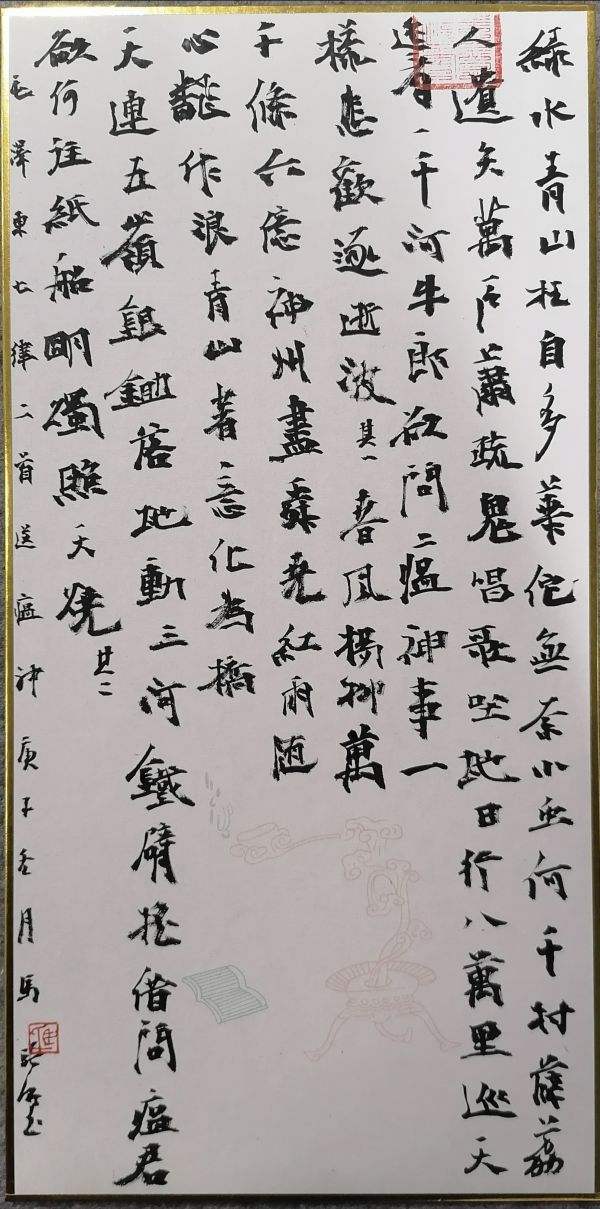 綠水青山枉自多華佗無奈小虫何千村薜荔
人遺矢萬戶蕭疏鬼唱歌坐地日行八萬里巡天
遥看一千河牛郎欲問瘟神事一
樣悲歡逐逝波其一春風楊柳萬
千條六億神州盡舜堯紅雨随
心翻作浪青山著意化為橋
天連五嶺銀鋤落地動三河鐵臂摇借問瘟君
欲何往紙船明燭照天燒其二
毛澤東七律二首送瘟神庚子冬月馬